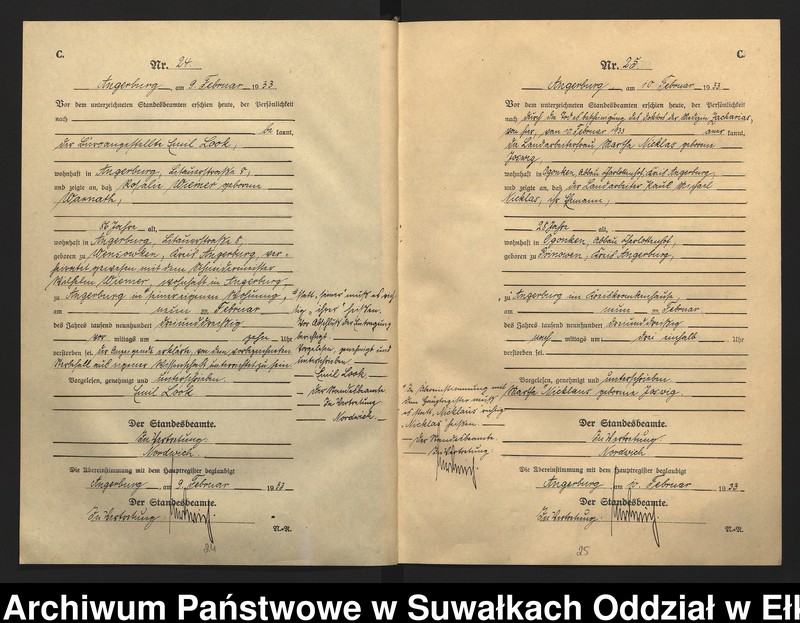 C.
Nr. 24.
Angerburg, am 9. Februar 1933
Vor dem unterzeichneten Standesbeamten erschien heute, der Persönlichkeit
nach
be kannt,
der Büroangestellte Emil Look,
wohnhaft in Angerburg, Litauerstraße 8,
und zeigte an, daß Rosalie Wiemer geborene
Warnath,
Jahre alt,
wohnhaft in Angerburg, Litauerstraße 8,
geboren zu Kreis Angerburg, ver-
heiratet gewesen mit dem
Wilhelm Wiemer, wohnhaft in Angerburg
zu Angerburg in seiner eigenen Wohnung,
am neun ten Februar
des Jahres tausend neunhundert dreiunddreißig
vor mittags um zehn Uhr
verstorben sei. Der Anzeigende erklärte, von dem vorbezeichneten
Sterbefall aus eigener Wissenschaft unterrichtet zu sein.
Vorgelesen, genehmigt und unterschrieben.
Emil Look
statt „seiner" muß es rich-
tig „ihrer" heißen.
Vor Abschluß der Eintragung
berichtigt.
Vorgelesen, genehmigt und
unterschrieben.
Emil Look.
Der Standesbeamte.
In Vertretung
Nordwich.
Der Standesbeamte.
In Vertretung.
Nordwich
Die Übereinstimmung mit dem Hauptregister beglaubigt
Angerburg am 9. Februar 1933
Der Standesbeamte.
In Vertretung
N.-R.
24
C.
Nr. 25.
Angerburg, am 10. Februar 1933
Vor dem unterzeichneten Standesbeamten erschien heute, der Persönlichkeit
nach durch die Todesbescheinigung des Doktor der Medizin Zacharias,
von hier, vom 10. Februar 1933 aner kannt,
die Landarbeiterfrau Martha Nicklas geborene
Joswig,
wohnhaft in Ogonken, Abbau Charlottenhof, Kreis Angerburg,
und zeigte an, daß der Landarbeiter Paul Michael
Nicklas, ihr Ehemann,
28 Jahre alt,
wohnhaft in Ogonken, Abbau Charlottenhof,
geboren zu Kreis Angerburg,
zu Angerburg im Kreiskrankenhause
am neun ten Februar
des Jahres tausend neunhundert dreiunddreißig
nach mittags um drei einhalb Uhr
verstorben sei.
Vorgelesen, genehmigt und unterschrieben
Martha Nicklaus geborene Joswig.
In Übereinstimmung mit
dem Hauptregister muß
es statt „Nicklaus" richtig
Nicklas heißen.
Der Standesbeamte.
In Vertretung.
Der Standesbeamte.
In Vertretung.
Nordwich
Die Übereinstimmung mit dem Hauptregister beglaubigt
Angerburg am 10. Februar 1933
Der Standesbeamte.
In Vertretung.
N.-R.
25
Archiwum Państwowe w Suwałkach Oddział w Ełk